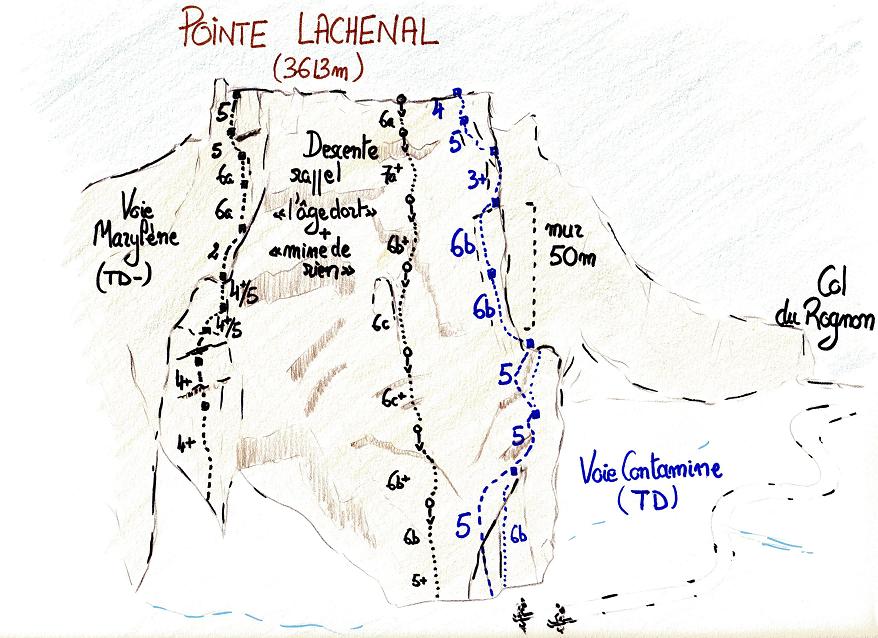 POINTE LACHENAL
(3613m)
5
5
6a
6a
2
4+/5
4+/5
4+
4+
Voie
Marylène
(TD-)
Descente
rappel
«l'âge dort»
+
«mine de
rien»
6a
7a+
6b+
6c
6c+
6b+
6b
5+
4
5
3+
6b
6b
5
5
5
6b
mur
50m
Voie Contamine
(TD)
Col
du Rognon